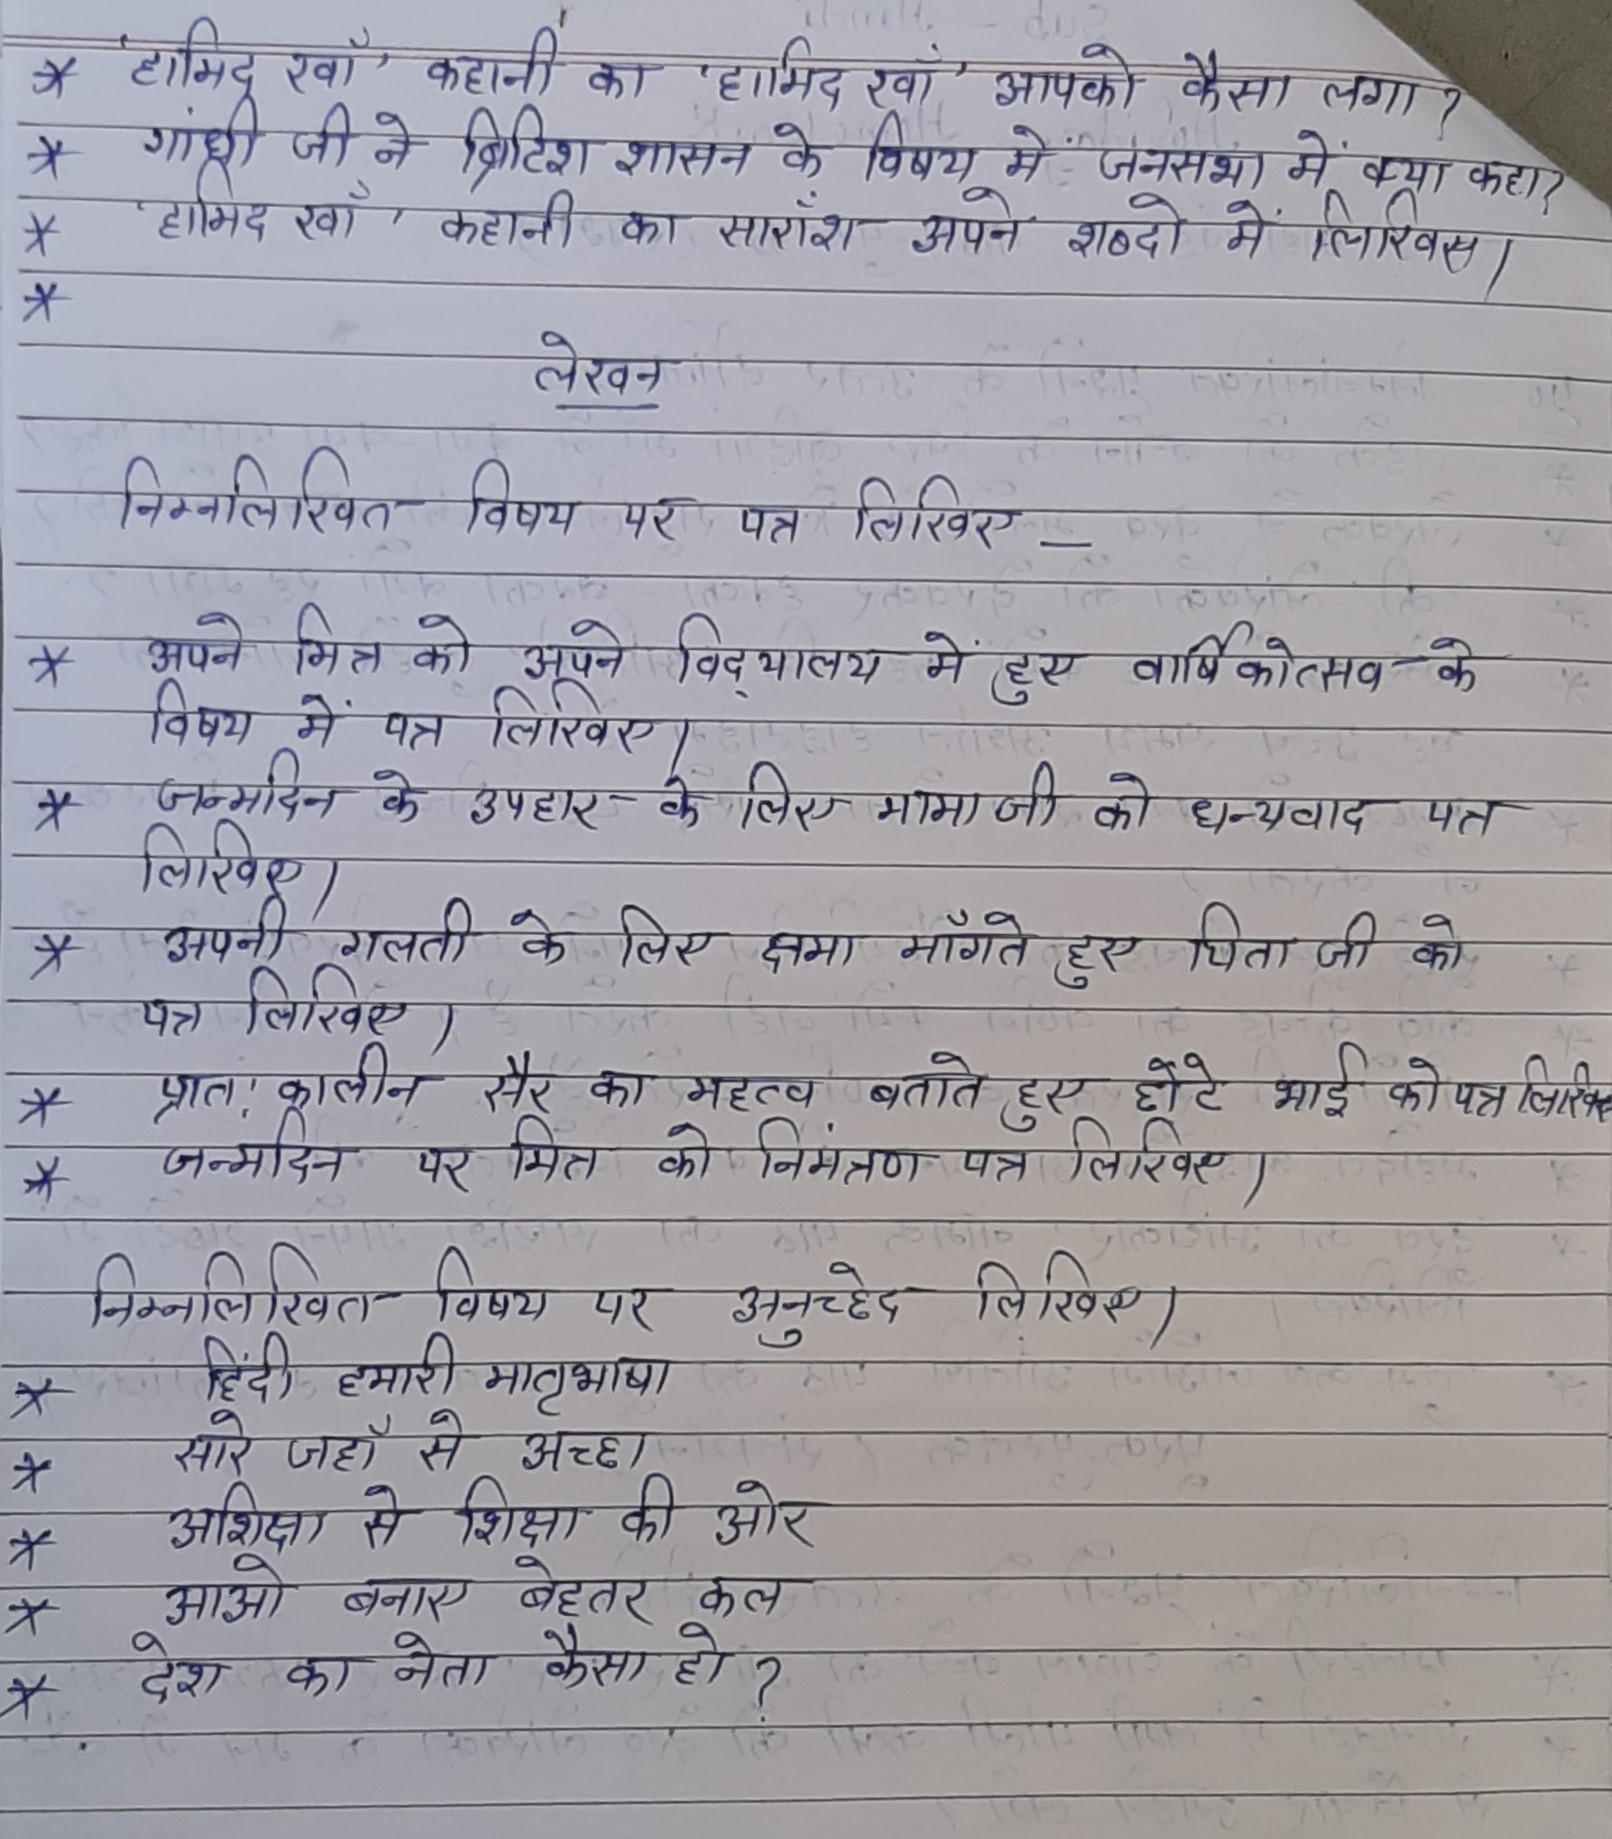 * 'हामिद खाँ' कहानी का 'हामिद खाँ' आपको कैसा लगा?
* गांधी जी ने ब्रिटिश शासन के विषय में जनसभा में क्या कहा?
* 'हामिद खाँ' कहानी का साराँश अपने शब्दो में लिखिए।
*
लेखन
निम्नलिखित विषय पर पत्र लिखिए –
* अपने मित्र को अपने विद्यालय में हुए वार्षिकोत्सव के
विषय में पत्र लिखिए।
* जन्मदिन के उपहार के लिए मामा जी को धन्यवाद पत्र
लिखिए।
* अपनी गलती के लिए क्षमा माँगते हुए पिता जी को
पत्र लिखिए।
* प्रात: कालीन सैर का महत्व बताते हुए छोटे भाई को पत्र लिखिए
* जन्मदिन पर मित्र को निमंत्रण पत्र लिखिए।
निम्नलिखित विषय पर अनुच्छेद लिखिए।
* हिंदी हमारी मातृभाषा
* सारे जहाँ से अच्छा
* अशिक्षा से शिक्षा की ओर
* आओ बनाए बेहतर कल
* देश का नेता कैसा हो?